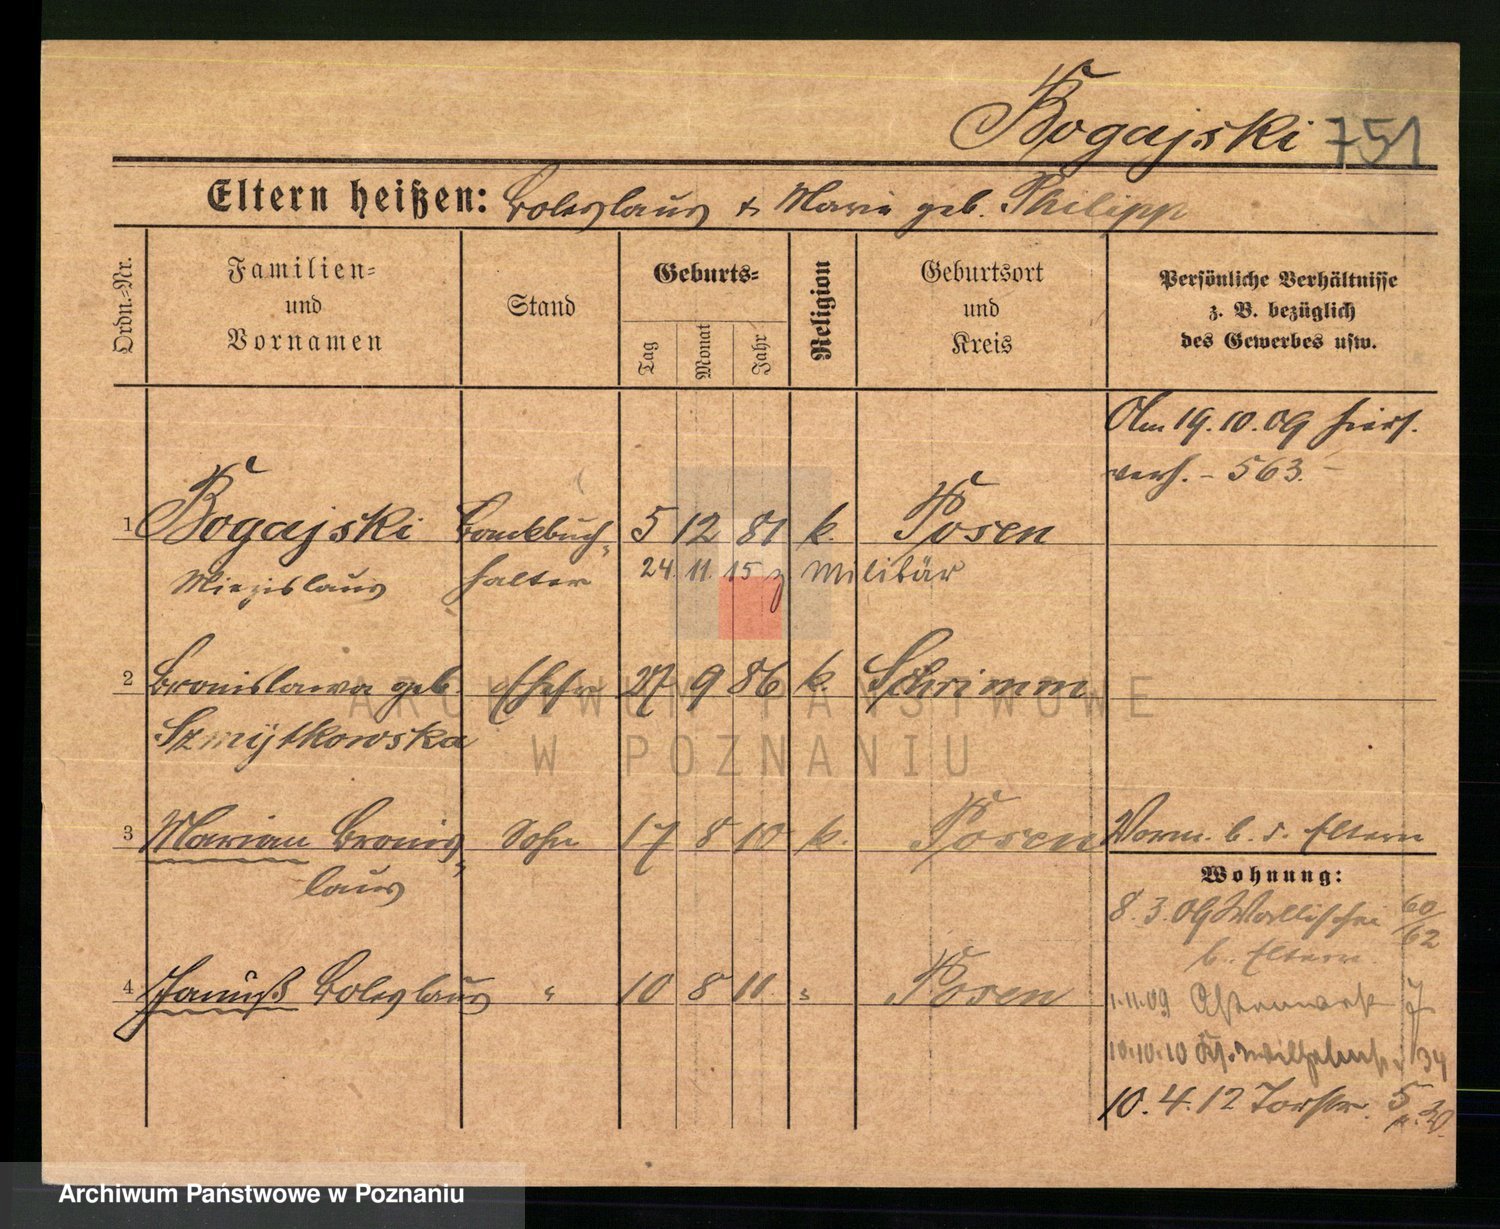 Bogajski 751
Eltern heißen: Boleslaus & Marie geb. Philipp
Ordn.-Nr.
Familien-
und
Vornamen
Stand
Geburts-
Tag
Monat
Jahr
Religion
Geburtsort
und
Kreis
Persönliche Verhältnisse
z. B. bezüglich
des Gewerbes usw.
Am 19.10.09 hier
verh. - 563.-
1 Bogajski Bankbuch- 5 12 81 k. Posen
Miezislaus halter 24. 11. 15 z Militär
2 Bronislawa geb. Ehefr 27 9 86 k. Schrimm
Szmÿtkowska
3 Marian Bronis- Sohn 17 8 10 k. Posen
laus
Vorm. b. d. Eltern
Wohnung:
8.3.09 Wallischei 60/62
b. Eltern.
4 Januß Boleslaus " 10 8 11 " Posen
1.11.09
10.10.10 Wilhelmstr. 34
10.4.12 Torstr. 5
ARCHIWUM PAŃSTWOWE
W POZNANIU
Archiwum Państwowe w Poznaniu